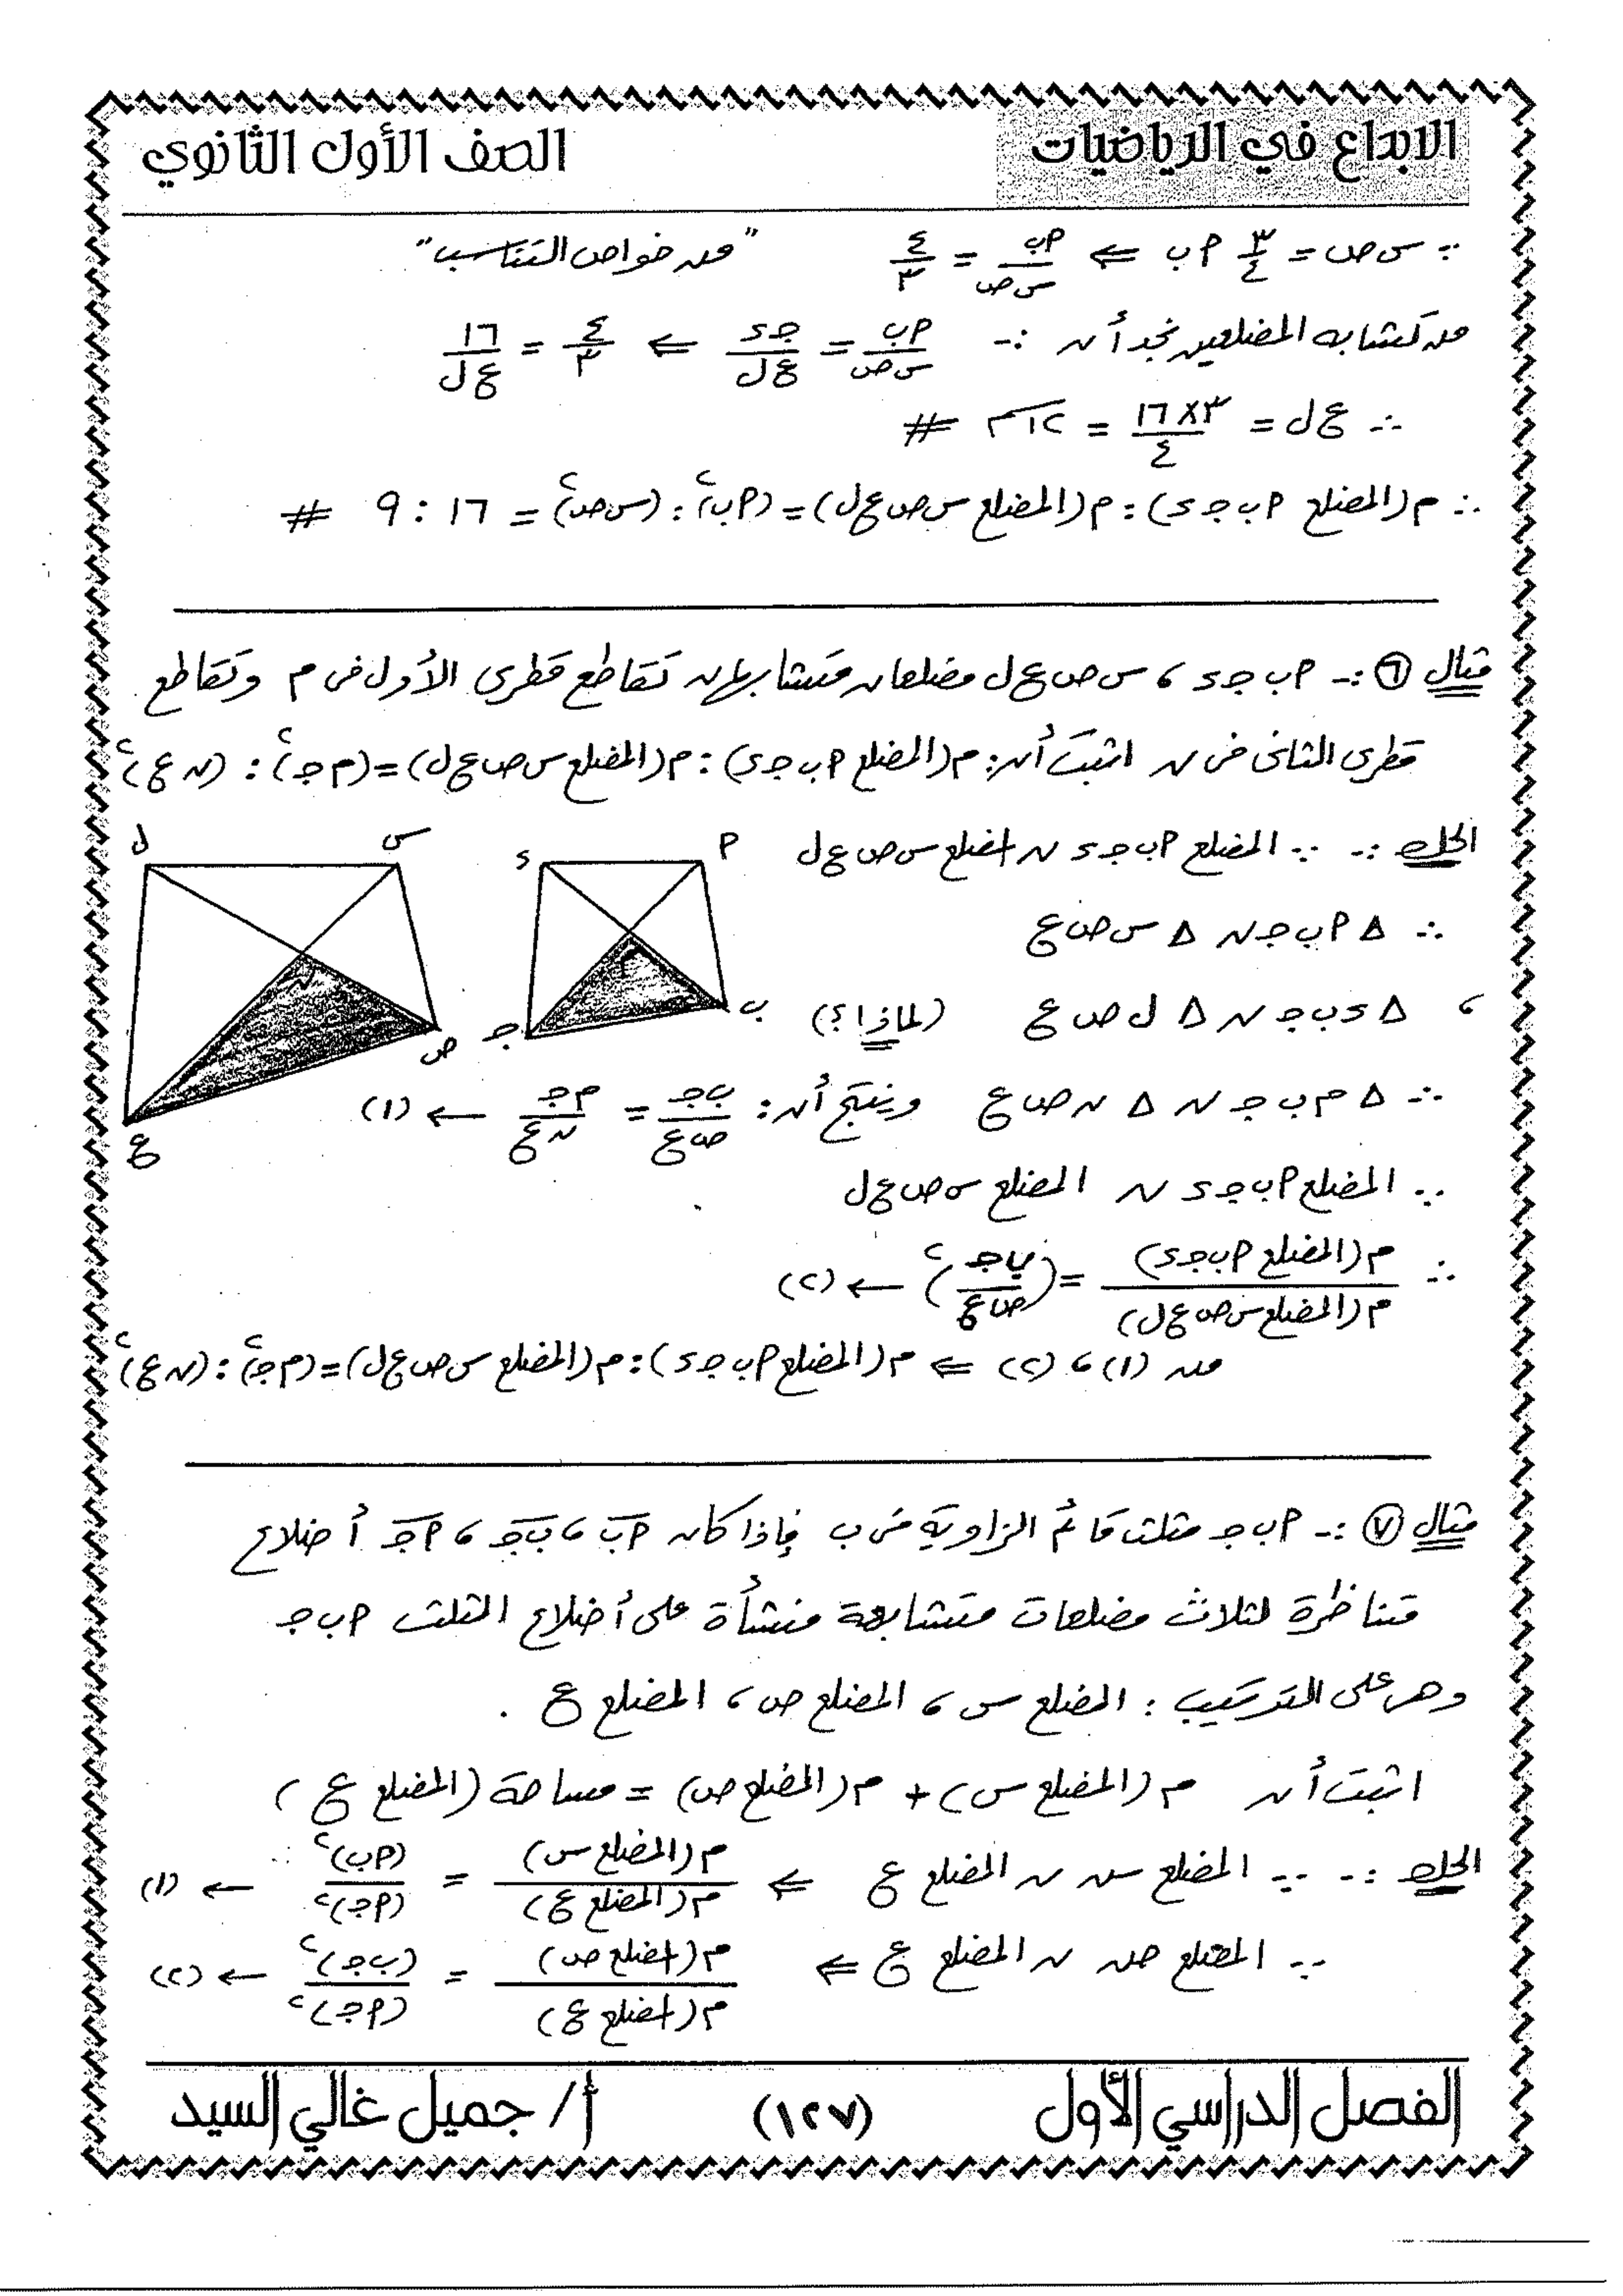 الابداع في الرياضيات
الصف الأول الثانوي
∵ س ص = ٣/٤ ٢ب ⇐ ٢ب/س ص = ٤/٣ "من خواص التناسب"
من تشابه المضلعين نجد أن :- ٢ب/س ص = جـ د/ع ل ⇐ ٤/٣ = ١٦/ع ل
∴ ع ل = ٣×١٦/٤ = ١٢سم #
∴ م(المضلع ٢ب جـ د) : م(المضلع س ص ع ل) = (٢ب)٢ : (س ص)٢ = ١٦ : ٩ #
مثال ٦ :- ٢ب جـ د ، س ص ع ل مضلعان متشابهان تقاطع قطرى الأول فى م وتقاطع
قطرى الثانى فى ن اثبت أن: م(المضلع ٢ب جـ د) : م(المضلع س ص ع ل) = (م جـ)٢ : (ن ع)٢
الحل :- ∵ المضلع ٢ب جـ د ~ المضلع س ص ع ل
∴ Δ ٢ب جـ ~ Δ س ص ع
، Δ د ب جـ ~ Δ ل ص ع (لماذا؟)
∴ Δ م ب جـ ~ Δ ن ص ع وينتج أن: ب جـ/ص ع = م جـ/ن ع ← (١)
∵ المضلع ٢ب جـ د ~ المضلع س ص ع ل
∴ م(المضلع ٢ب جـ د)/م(المضلع س ص ع ل) = (ب جـ/ص ع)٢ ← (٢)
من (١) ، (٢) ⇐ م(المضلع ٢ب جـ د) : م(المضلع س ص ع ل) = (م جـ)٢ : (ن ع)٢
ل س د ٢
م ن
ب ص جـ ع
مثال ٧ :- ٢ب جـ مثلث قائم الزاوية فى ب فإذا كان ٢ب ، ب جـ ، ٢جـ أضلاع
متناظرة لثلاث مضلعات متشابهة منشأة على أضلاع المثلث ٢ب جـ
وهى على الترتيب : المضلع س ، المضلع ص ، المضلع ع .
اثبت أن م(المضلع س) + م(المضلع ص) = مساحة (المضلع ع)
الحل :- ∵ المضلع س ~ المضلع ع ⇐ م(المضلع س)/م(المضلع ع) = (٢ب)٢/(٢جـ)٢ ← (١)
∵ المضلع ص ~ المضلع ع ⇐ م(المضلع ص)/م(المضلع ع) = (ب جـ)٢/(٢جـ)٢ ← (٢)
الفصل الدراسي الأول
(١٢٧)
أ/ جميل غالي السيد